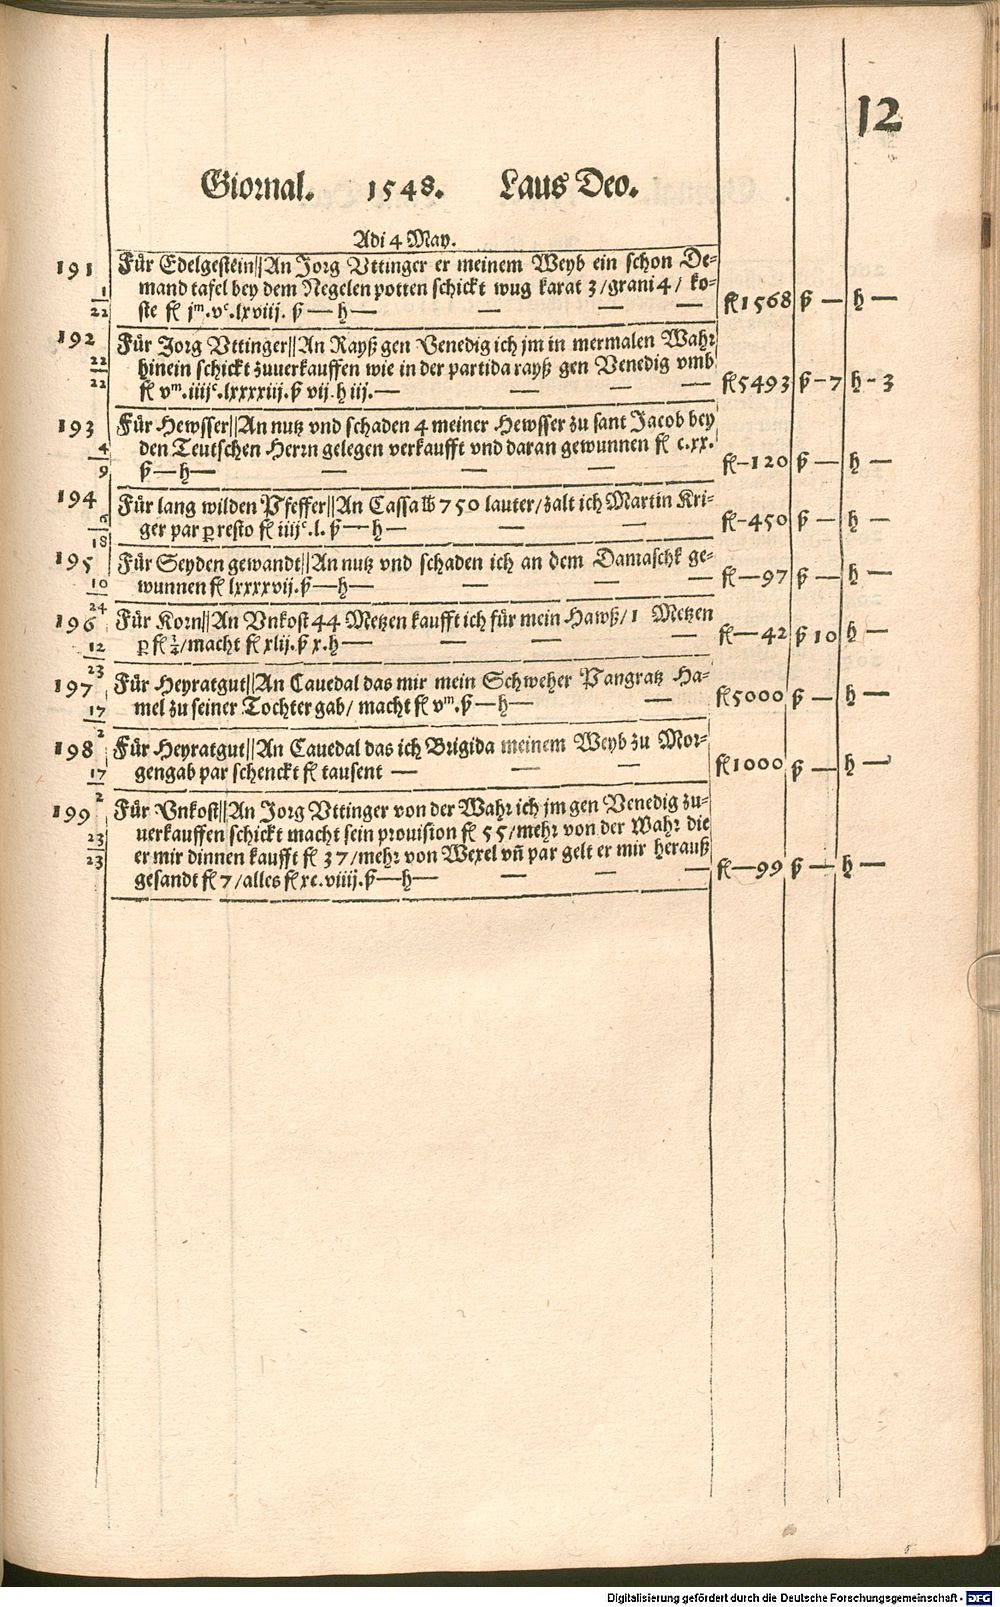 12
Giornal. 1548. Laus Deo.
Adi 4 May.
191 Für Edelgestein||An Jorg Vttinger er meinem Weyb ein schon De-
1/22 mand tafel bey dem Negelen potten schickt wug karat 3/grani 4/ ko-
ste fl jᵐ.vᶜ.lxviij. ß — h — — — — fl 1568 ß — h —
192 Für Jorg Vttinger||An Rayß gen Venedig ich jm in mermalen Wahr
22/22 hinein schickt zuuerkauffen wie in der partida rayß gen Venedig vmb
fl vᵐ.iiijᶜ.lxxxxiij.ß vij.h iij.— — — — fl 5493 ß – 7 h – 3
193 Für Hewsser||An nutz vnd schaden 4 meiner Hewsser zu sant Jacob bey
4/9 den Teutschen Herrn gelegen verkaufft vnd daran gewunnen fl c.xx.
ß — h — — — — fl – 120 ß — h —
194 Für lang wilden Pfeffer||An Cassa ℔ 750 lauter/zalt ich Martin Kri-
6/18 ger par ꝑ resto fl iiijᶜ.l. ß — h — — — fl – 450 ß — h —
195 Für Seyden gewandt||An nutz vnd schaden ich an dem Damaschk ge-
10/24 wunnen fl lxxxxvij.ß — h — — — — fl — 97 ß — h —
196 Für Korn||An Vnkost 44 Metzen kaufft ich für mein Hawß/1 Metzen
12/23 ꝑ fl ½/macht fl xlij.ß x.h — — — — fl — 42 ß 10 h —
197 Für Heyratgut||An Cauedal das mir mein Schweher Pangratz Ha-
17/2 mel zu seiner Tochter gab/ macht fl vᵐ.ß — h — — fl 5000 ß — h —
198 Für Heyratgut||An Cauedal das ich Brigida meinem Weyb zu Mor-
17/2 gengab par schenckt fl tausent — — — fl 1000 ß — h —
199 Für Vnkost||An Jorg Vttinger von der Wahr ich jm gen Venedig zu-
23/23 uerkauffen schickt macht sein prouision fl 55/mehr von der Wahr die
er mir dinnen kaufft fl 37/mehr von Wexel vn̄ par gelt er mir herauß
gesandt fl 7/alles fl xc.viiij.ß — h — — — — fl — 99 ß — h —
Digitalisierung gefördert durch die Deutsche Forschungsgemeinschaft - DFG